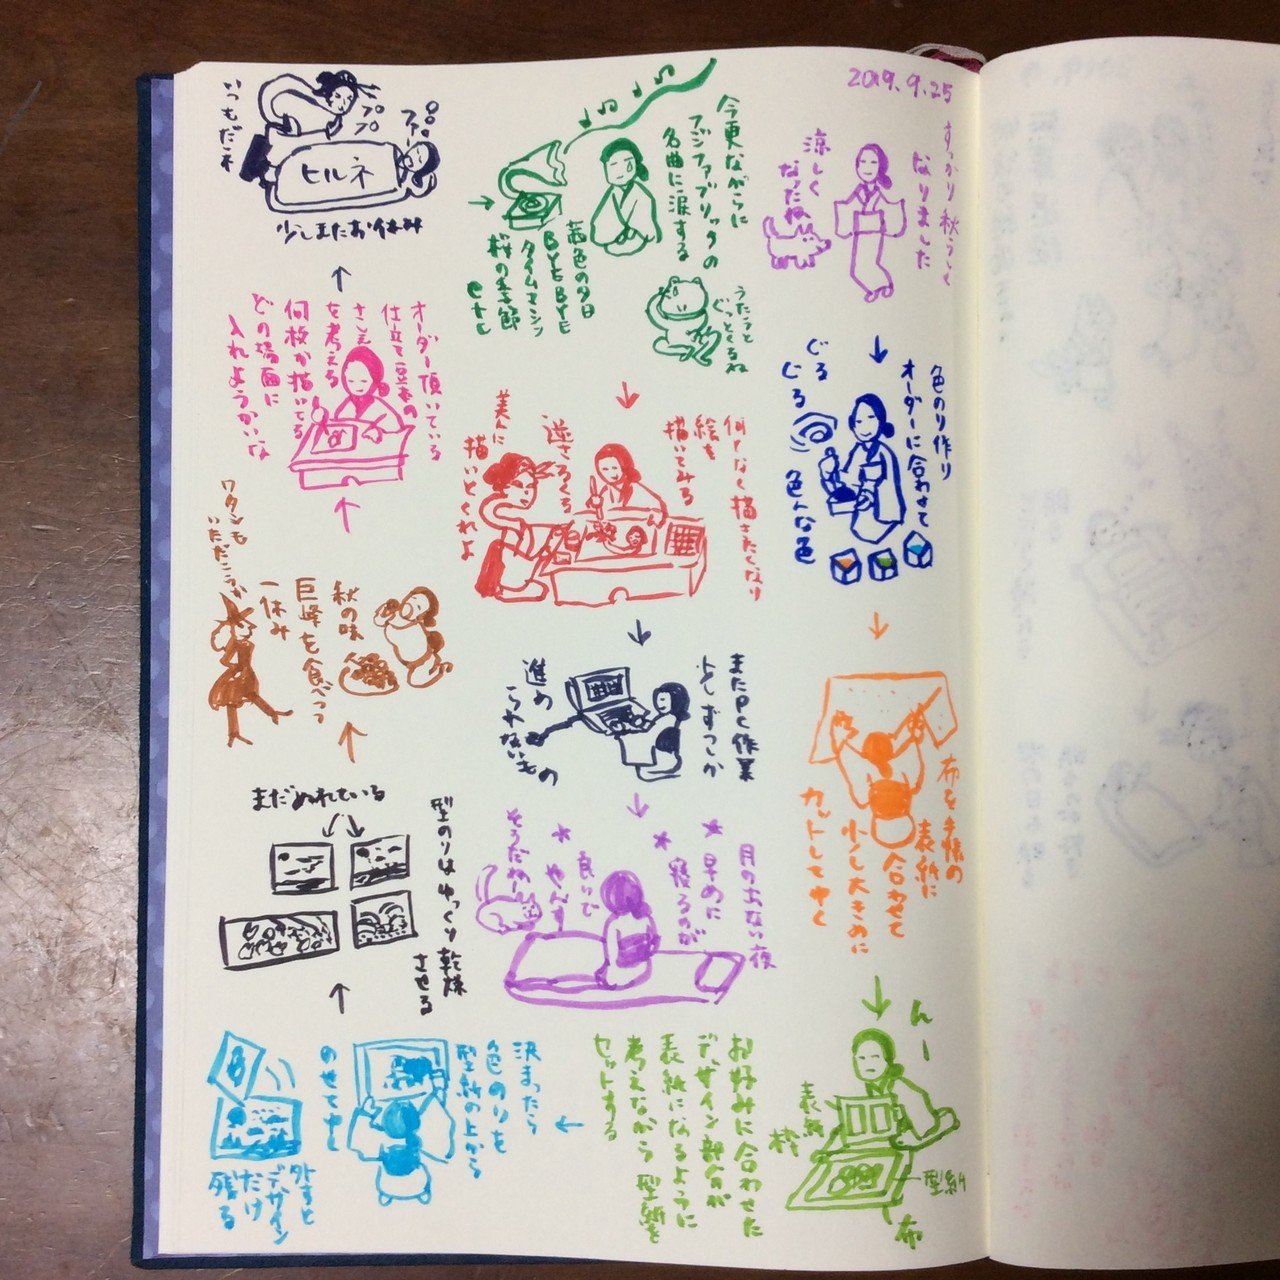 2019.9.25
すっかり秋らしく
なりました
涼しく
なったね
色のり作り
オーダーに合わせて
ぐる
ぐる
色んな色
布を手様の
表紙に
合わせて
少し大きめに
カットしてゆく
んー
表紙
枠
型紙
布
お好みに合わせた
デザイン部分が
表紙になるように
考えながら型紙を
セットする
決まったら
色のりを
型紙の上から
のせてゆく
外すと
デザイン
だけ
残る
型のりはゆっくり乾燥
させる
まだぬれている
秋の味
巨峰を食べて
一休み
ワタシも
いただこうか
オーダー頂いている
仕立て豆本の
さし絵
を考える
何枚か描いてる
どの場面に
入れようかいな
いつもだネ
プ
プ
ファー
ヒルネ
少しまたお休み
今更ながらに
フジファブリックの
名曲に涙する
茜色の夕日
BYE BYE
タイムマシン
桜の季節
etc
うたうと
ぐっとくるね
何となく描きたくなり
絵を
描いてみる
逆さろくろ
美人に
描いとくれよ
またPC作業
少しずつしか
進め
られないもの
月の出ない夜
早めに
寝るのが
良いで
やんす
そうだねー